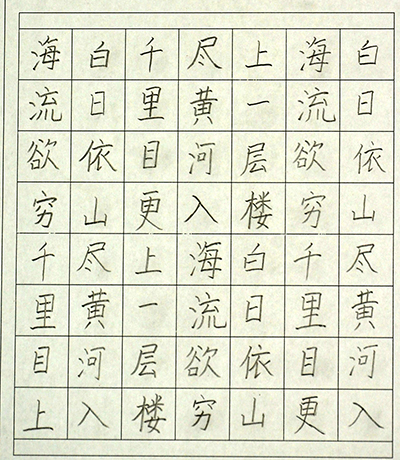 白日依山尽黄河入
海流欲穷千里目更
上一层楼白日依山
尽黄河入海流欲穷
千里目更上一层楼
白日依山尽黄河入
海流欲穷千里目上